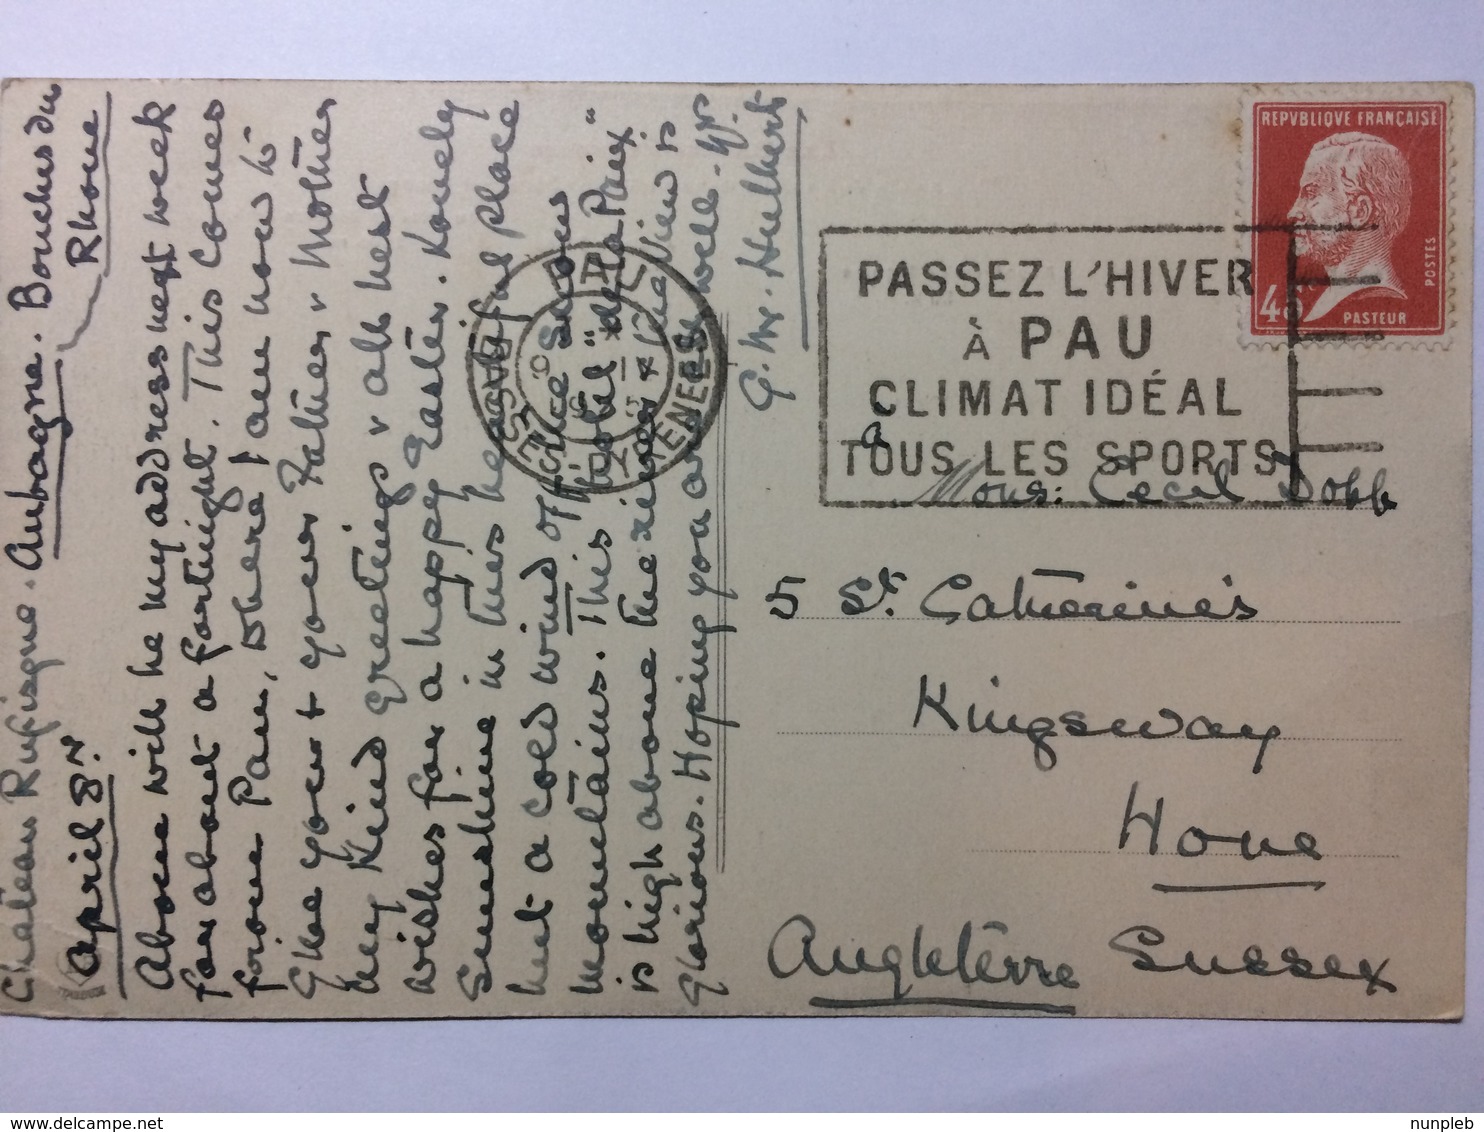 Château Rufisque. Aubagne. Bouches du
Rhone
April 8th.
Above will be my address next week
for about a fortnight. This comes
from Pau, where I am now to
give you & your Father & Mother
my kind greetings & all best
wishes for a happy Easter. Lovely
sunshine in this beautiful place
but a cold wind off the snow
mountains. This hotel "de la Paix"
is high above the river & the view is
glorious. Hoping you are well. Yr.
G. W. Hulbert
PAU
9 IV
BASSES PYRENEES
PASSEZ L'HIVER
À PAU
CLIMAT IDÉAL
TOUS LES SPORTS
REPVBLIQVE FRANÇAISE
POSTES
PASTEUR
a
Mons: Cecil Dobb
5 St. Catherine's
Kingsway
Hove
Angletérre Sussex
delcampe.net
nunpleb